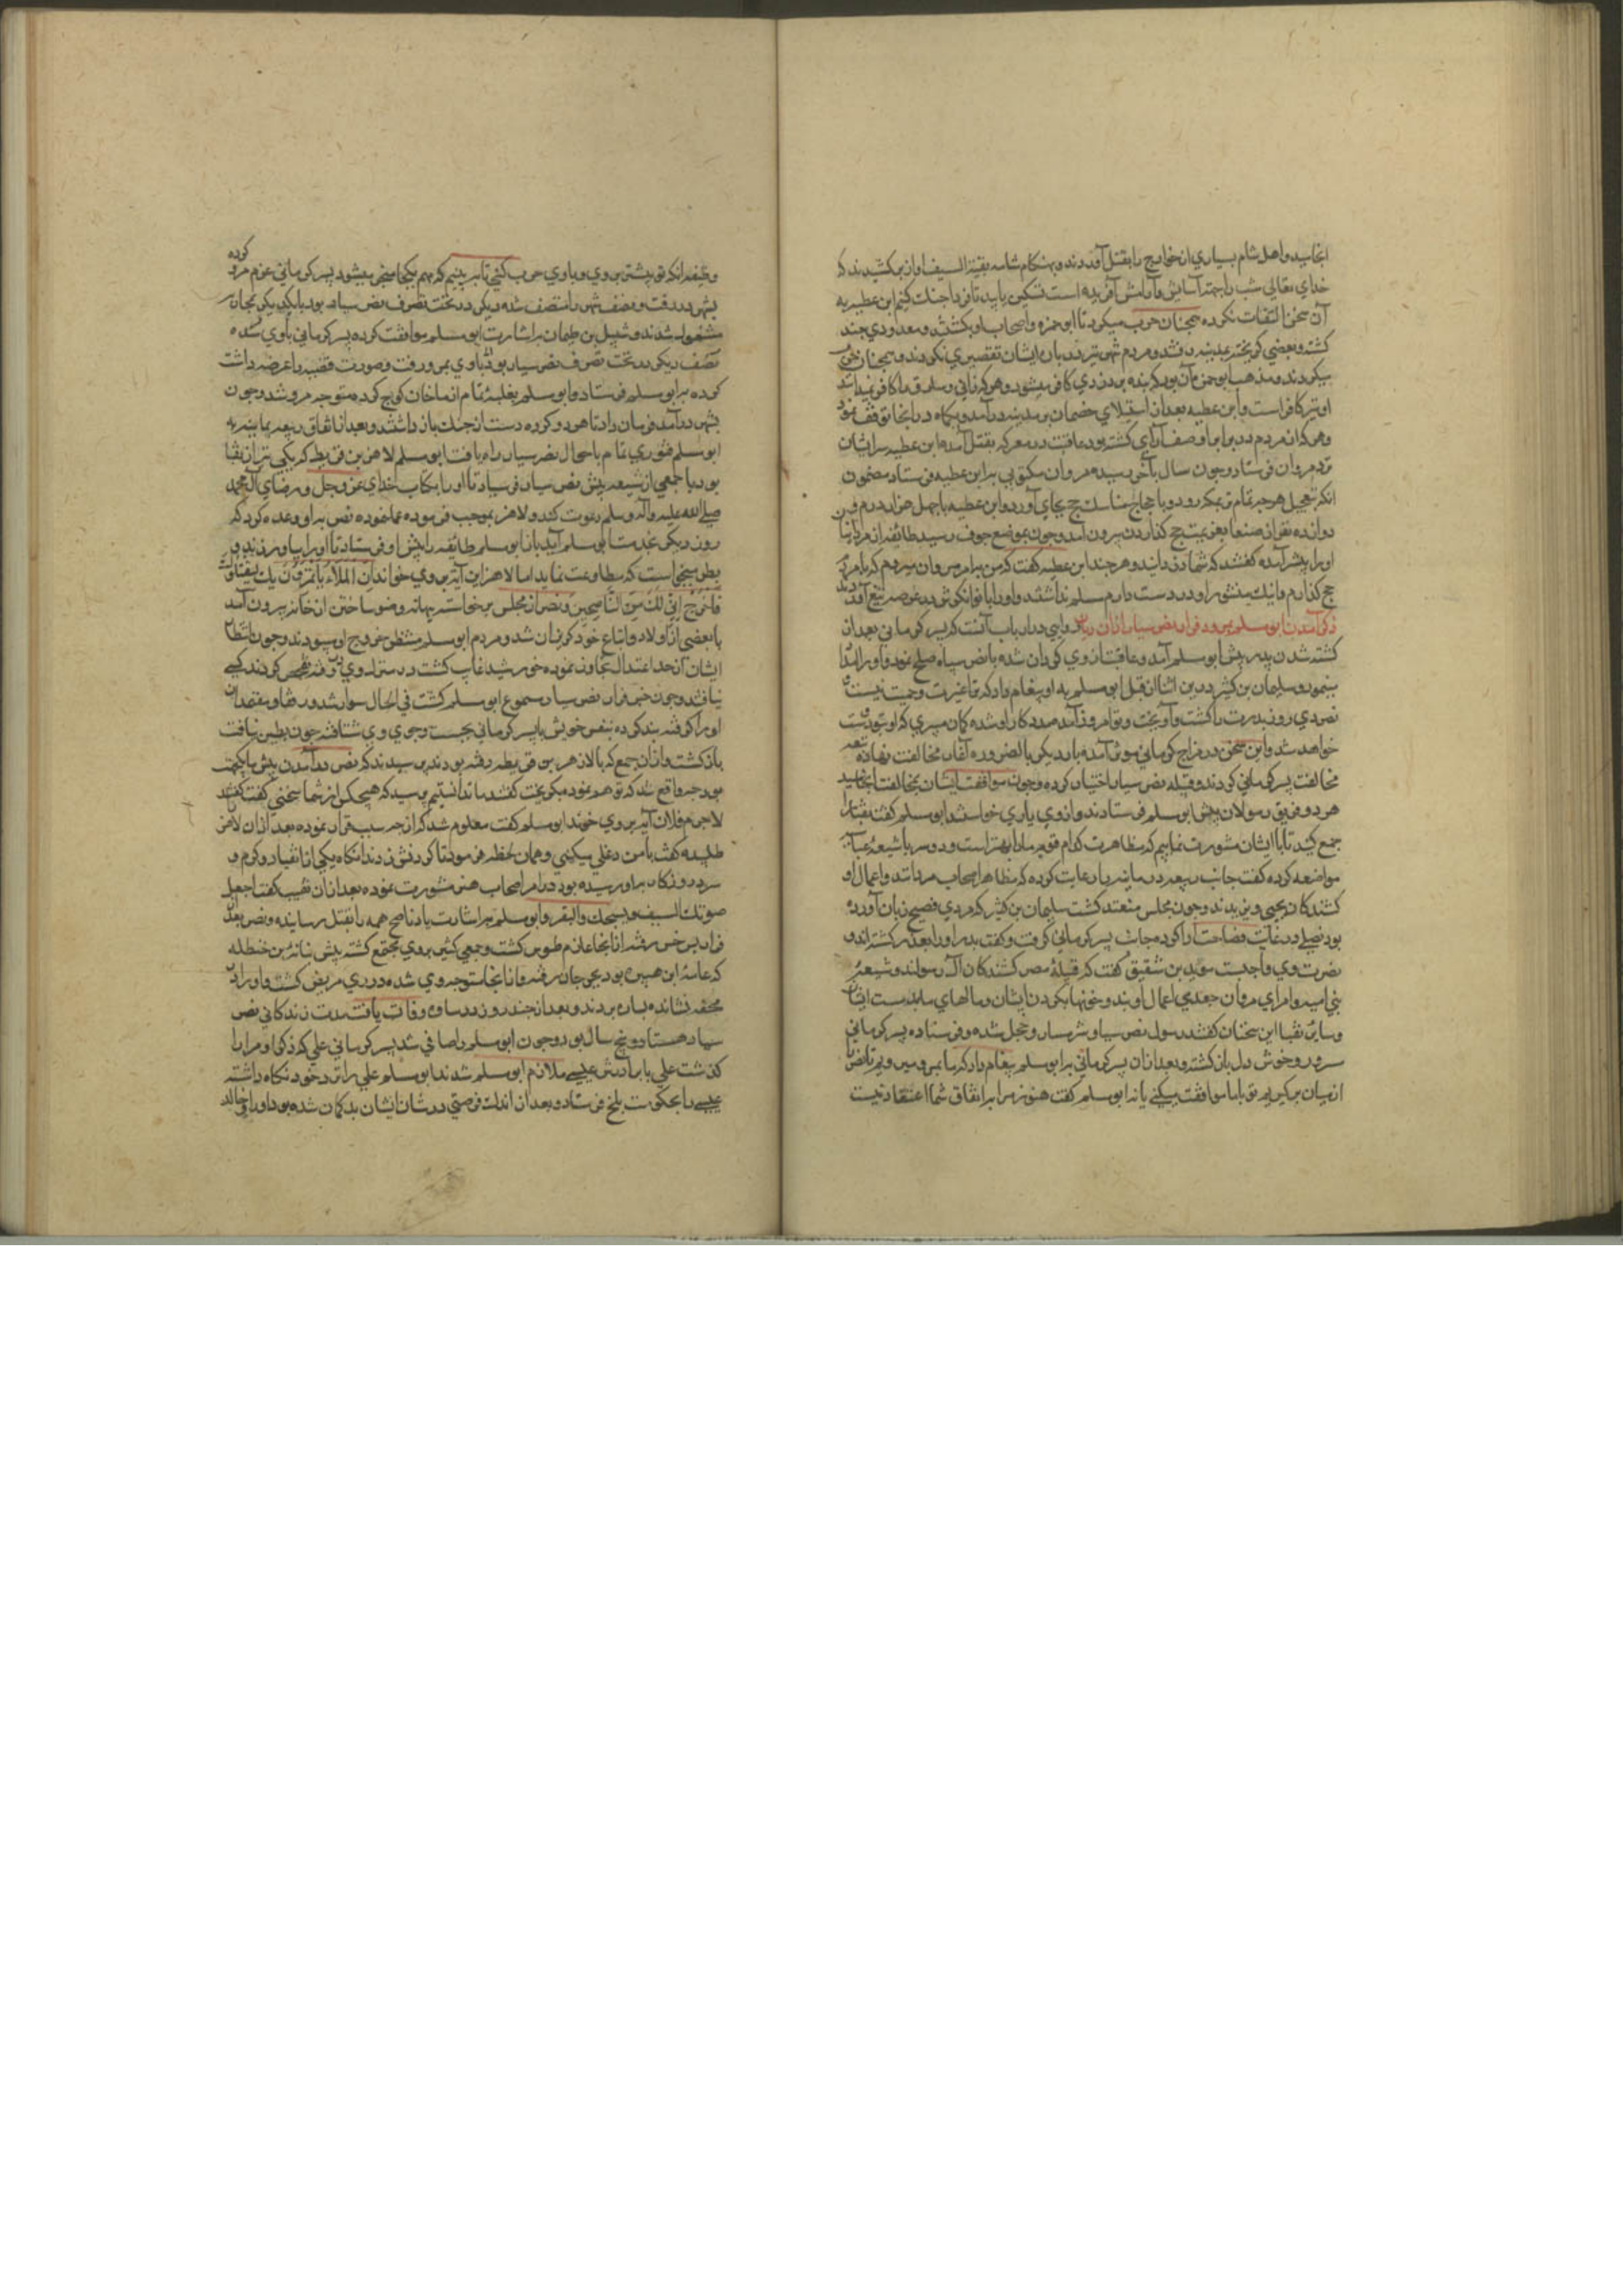 انجامید و اهل شام بسیاری از خوارج را بقتل آوردند و بهنکام شام بقیة السیف اواز برکشیدند که
خدای تعالی شب را جهة آسایش و آرامش آفریده است تسکین باید تا فردا جنک کنیم ابن عطیه به
آن سخن التفات نکرده همچنان حرب میکرد تا ابو حمزه و اصحاب او بکشتند و معدودی چند
کشته و بعضی کریخته بمدینه رفتند و مردم شهر نیز در باره ایشان تقصیری نکردند و همچنان
میکردند و مذهب ابو حمزه آن بود که بنده بدزدی کافر میشود و هر که زانی و سارق را کافر نمیداند
او نیز کافر است و ابن عطیه بعد از استیلای خصمان بر مدینه در آمد و یکماه در انجا توقف نمود
و هر که از مردم در برابر او صف آرای کشته بود عاقبت در معرکه بقتل آمد و ابن عطیه سر ایشان
نزد مروان فرستاد و چون سال بآخر رسید مروان مکتوبی به ابن عطیه فرستاد مضمون
انکه بتعجیل هر چه تمام تر بمکه رود و با حجاج مناسک حج بجای آورد و ابن عطیه با چهل هزار درم و
دوازده نفر از صنعا بعزیمت حج کذاردن بیرون آمد و چون بموضع جوف رسید طائفه از مردم انجا
او را پیش آمده کفتند که شما دزدانید و هر چند ابن عطیه کفت که من بامر مروان میروم که با مردم
حج کذارم و اینک منشور او در دست دارم مسلم نداشتند و او را با
ذکر آمدن ابو مسلم بمرو و فرار نصر سیار از ان دیار راویی در ار باب آنست که پسر کرمانی بعد از
کشته شدن پدر پیش ابو مسلم آمد و عاقبت از وی کردان شده با نصر سیار صلح نمود و او را
بنمود و سلیمان بن کثیر درین اثنا از قبل ابو مسلم به او پیغام داد که ترا غیرت و حمیت نیست
نصر دی روز پدرت را کشت و آویخت و تو امروز آمده مددکار او شده کمان میبری که او بتو دوست
خواهد شد و این سخن در مزاج کرمانی موثر آمده بار دیکر بالضروره آغاز مخالفت نهاد
مخالفت پسر کرمانی کردند و قبیله نصر سیار اختیار کرده و چون موافقت ایشان بمخالفت انجامید
هر دو فریق رسولان پیش ابو مسلم فرستادند و از وی یاری خواستند ابو مسلم کفت نقبا را
جمع کنید تا با ایشان مشورت نماییم که مظاهرت کدام قوم ما را بهتر است و در سر با شیعه عباسیه
مواضعه کرده کفت جانب ربیعه در میانه رعایت کرده که مظاهر اصحاب مروانند و اعمال او
کشندکان یحیی و زیدند و چون مجلس منعقد کشت سلیمان بن کثیر که مردی فصیح زبان آور
بود فصلی در غایت فصاحت ادا کرده جانب پسر کرمانی کرفت و کفت پدر او را بعذر کشته اند و
نصرت وی واجبست مویدین شقیق کفت که قبیله مضر کشندکان آل رسولند و شیعه
بنی امیه و امرای مروان جعدی اعمال اویند و خونها بکردن ایشان و مالهای ما بدست ایشان
و سایر نقبا این سخنان کفتند رسول نصر سیار شرمسار و خجل شده و فرستاده پسر کرمانی
مسرور و خوش دل باز کشته و بعد از ان پسر کرمانی به ابو مسلم پیغام داد که ما بمرو میرویم تا نصر را
از میان برکیریم تو با ما موافقت میکنی یا نه ابو مسلم کفت هنوز مرا بر اتفاق شما اعتقاد نیست
وظیفه انکه تو پیشتر بروی و باوی حرب کنی تا ببینیم که مهم بکجا منجر میشود پسر کرمانی عزم مرو کرده
بشهر در رفت و نصف شهر را متصف شد و دیکری در تحت تصرف نصر سیار بود با یکدیکر بمحاربه
مشغول شدند و شبیل بن طهمان به اشارت ابو مسلم موافقت کرده پسر کرمانی باوی شده
نصف دیکر که در تحت تصرف نصر سیار بود باوی بمرو رفت و صورت قضیه را عرضه داشت
کرده به ابو مسلم فرستاد و ابو مسلم بغلبه تمام از ماخان کوچ کرده متوجه مرو شد و چون
بشهر در آمد فرمان داد تا هر دو کروه دست از جنک باز داشتند و بعد از اتفاق ربیعه یمانیه به
ابو مسلم فتوری تمام باحوال نصر سیار راه یافت ابو مسلم لاهز بن قریظه که یکی از نقبا
بود با جمعی از شیعه پیش نصر سیار فرستاد تا او را بکتاب خدای عز و جل و رضای آل محمد
صلی الله علیه و آله و سلم دعوت کند و لاهز بموجب فرموده عمل نموده نصر به او وعده کرد که
روز دیکر بخدمت ابو مسلم آید باز ابو مسلم طائفه را پیش او فرستاد تا او را بیاورند و
مطاوعت نماید اما لاهز این آیه بروی خواند ان الملاء یاتمرون بک لیقتلوک
فاخرج انی لک من الناصحین و نصر از مجلس برخاسته بهانه وضو ساختن از خانه بیرون آمد
با بعضی از اولاد و اتباع خود کریزان شد و مردم ابو مسلم منتظر خروج او میبودند و چون انتظار
ایشان از حد اعتدال تجاوز نموده خورشید غایب کشت در منزل وی رفته تفحص کردند کسی
نیافتند و چون خبر فرار نصر سیار مسموع ابو مسلم کشت فی الحال سوار شد و معتمدان
او را کرفته بند کرده بنفس خویش با پسر کرمانی بجست و جوی وی شتافته چون نیافت
باز کشت و از ان جمع که با لاهز بن قریظه رفته بودند پرسیدند که نصر در آمدن پیش ما یکجهت
بود چه واقع شد که توهم نموده بکریخت کفتند ما ندانستیم پرسید که هیچکس از شما سخنی کفت کفتند
لاهز فلان آیه بروی خوند ابو مسلم کفت معلوم شد که از چه سبب فرار نموده بعد از ان لاهز
طلبیده کفت با من دغلی میکنی و همان لحظه فرمود تا کردنش زدند انکاه یکی از
سرد روزکار به او رسیده بود در امر اصحاب نصر مشورت نموده بعد از ان نقیب کفت اجعل
صوتک السیف و سجنک و القبر و ابو مسلم به اشارت یار ناصح همه را بقتل رسانیده و نصر بعد از
فرار بسرخس رفته از انجا عازم طوس کشت و جمعی کثیر بروی مجتمع کشته پیش نباته بن حنظله
که عامل ابن هبیره بود بجرجان رفته و از انجا متوجه وی شده در ری مریض کشت و او را در
محفه نشانده بساوه بردند و بعد از چند روز در ساوه وفات یافت مدت زندکانی نصر
سیار هشتاد و پنج سال بود و چون ابو مسلم را صافی شد پسر کرمانی علی که ذکر او مرارا
کذشت علی با برادرش عیسی ملازم ابو مسلم شدند ابو مسلم علی را نزد خود نکاه داشته
عیسی را بحکومت بلخ فرستاد و بعد از اندک فرصتی در شان ایشان بدکمان شده به داود